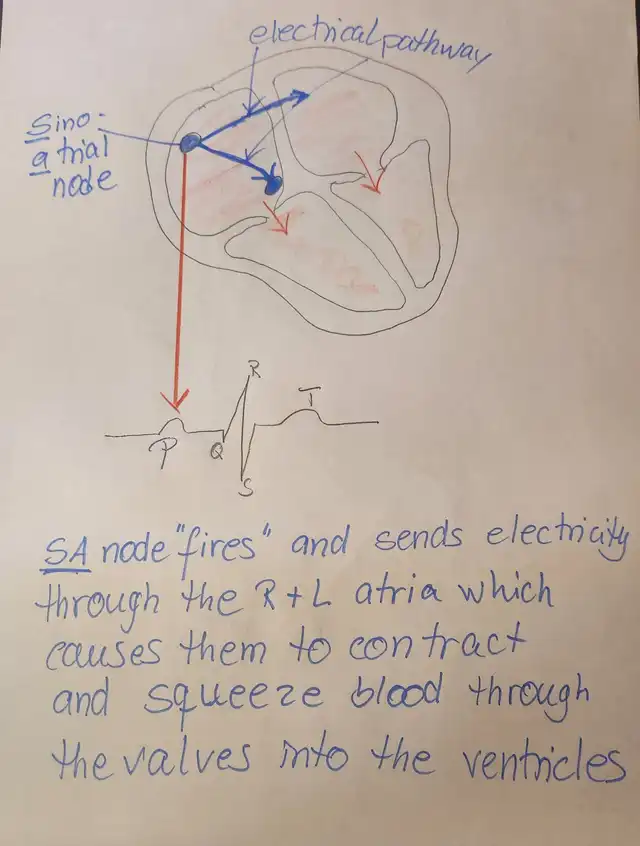 electrical pathway
Sino-
atrial
node
R
T
P
Q
S
SA node "fires" and sends electricity
through the R + L atria which
causes them to contract
and squeeze blood through
the valves into the ventricles